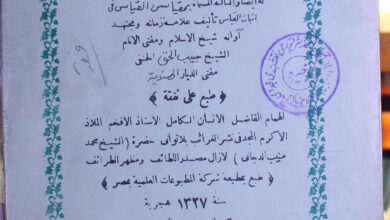 اثبات القياس تأليف علامة زمانه ومجتهد
آوانه شيخ الاسلام ومفتى الانام
الشيخ حبيب الحق الحنفى
مفتى الديار الهندية
﴿ طبع على نفقة ﴾
الهمام الفاضل الانسان الكامل الاستاذ الافخم الملاذ
الاكرم المجد فى نشر الغرائب بلاتوانى حضرة (الشيخ محمد
منيب الدجانى ) لازال مصدر اللطائف ومظهر الظرائف
﴿ طبع بمطبعة شركة المطبوعات العلمية بمصر ﴾
سنة ١٣٢٧ هجرية